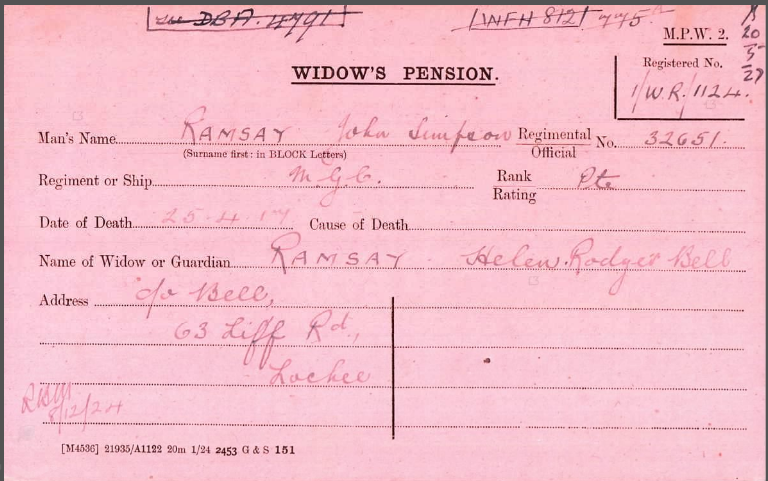 DBA. 4791 WFH 812/775 A
M.P.W. 2.
20
5
27
WIDOW'S PENSION.
Registered No.
1/W.R./1124.
Man's Name RAMSAY John Simpson Regimental No. 32651.
Official
(Surname first: in BLOCK Letters)
Regiment or Ship M.G.C. Rank Pte
Rating
Date of Death 25.4.17 Cause of Death
Name of Widow or Guardian RAMSAY Helen Rodger Bell
Address c/o Bell,
63 Liff Rd.,
Lochee
8/12/24
[M4536] 21935/A1122 20m 1/24 2453 G & S 151